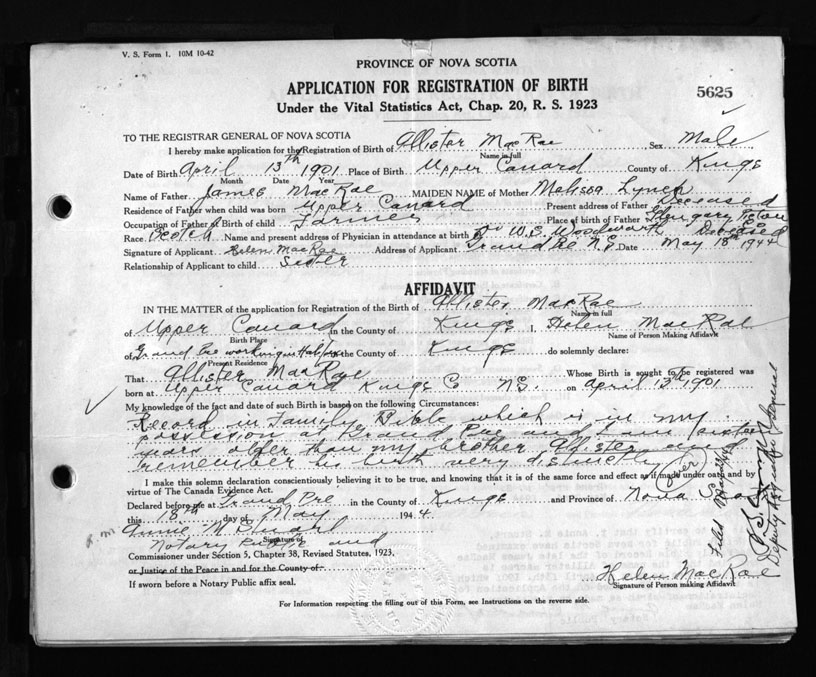 V. S. Form 1. 10M 10-42
PROVINCE OF NOVA SCOTIA
APPLICATION FOR REGISTRATION OF BIRTH
5625
Under the Vital Statistics Act, Chap. 20, R. S. 1923
TO THE REGISTRAR GENERAL OF NOVA SCOTIA
I hereby make application for the Registration of Birth of Allister MacRae Sex Male
Name in full
Date of Birth April 13th 1901 Place of Birth Upper Canard County of Kings
Month Date Year
Name of Father James MacRae MAIDEN NAME of Mother Melissa Lynch
Residence of Father when child was born Upper Canard Present address of Father Deceased
Occupation of Father at Birth of child Farmer Place of birth of Father
Race Scotch Name and present address of Physician in attendance at birth Dr W.B. Woodworth Deceased
Signature of Applicant Helen MacRae Address of Applicant Grand Pre N.S. Date May 18th 1944
Relationship of Applicant to child Sister
AFFIDAVIT
IN THE MATTER of the application for Registration of the Birth of Allister MacRae
Name in full
of Upper Canard in the County of Kings I, Helen MacRae
Birth Place Name of Person Making Affidavit
of Grand Pre working in Halifax in the County of Kings do solemnly declare:
Present Residence
That Allister MacRae Whose Birth is sought to be registered was
born at Upper Canard Kings Co N.S. on April 13th 1901
My knowledge of the fact and date of such Birth is based on the following Circumstances:
Record in Family Bible which is in my
possession at Grand Pre and I am sixteen
years older than my brother Allister and
remember his birth very distinctly
I make this solemn declaration conscientiously believing it to be true, and knowing that it is of the same force and effect as if made under oath and by
virtue of The Canada Evidence Act.
Declared before me at Grand Pre in the County of Kings and Province of Nova Scotia
this 18th day of May 1944
Annie M Stuart
Signature of
Notary Public and
Commissioner under Section 5, Chapter 38, Revised Statutes, 1923.
or Justice of the Peace in and for the County of
If sworn before a Notary Public affix seal.
Helen MacRae
Signature of Person making Affidavit
For Information respecting the filling out of this Form, see Instructions on the reverse side.
Filed
Deputy Registrar General